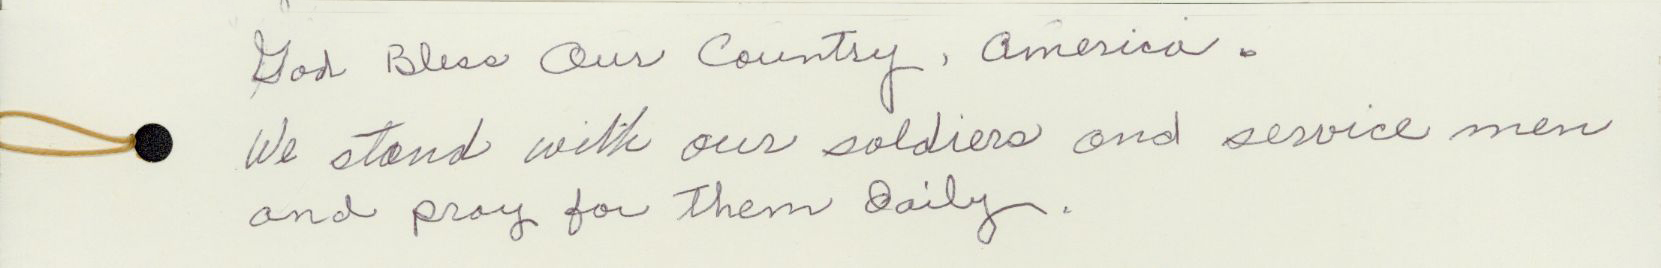 God Bless Our Country, America.
We stand with our soldiers and service men
and pray for them Daily.